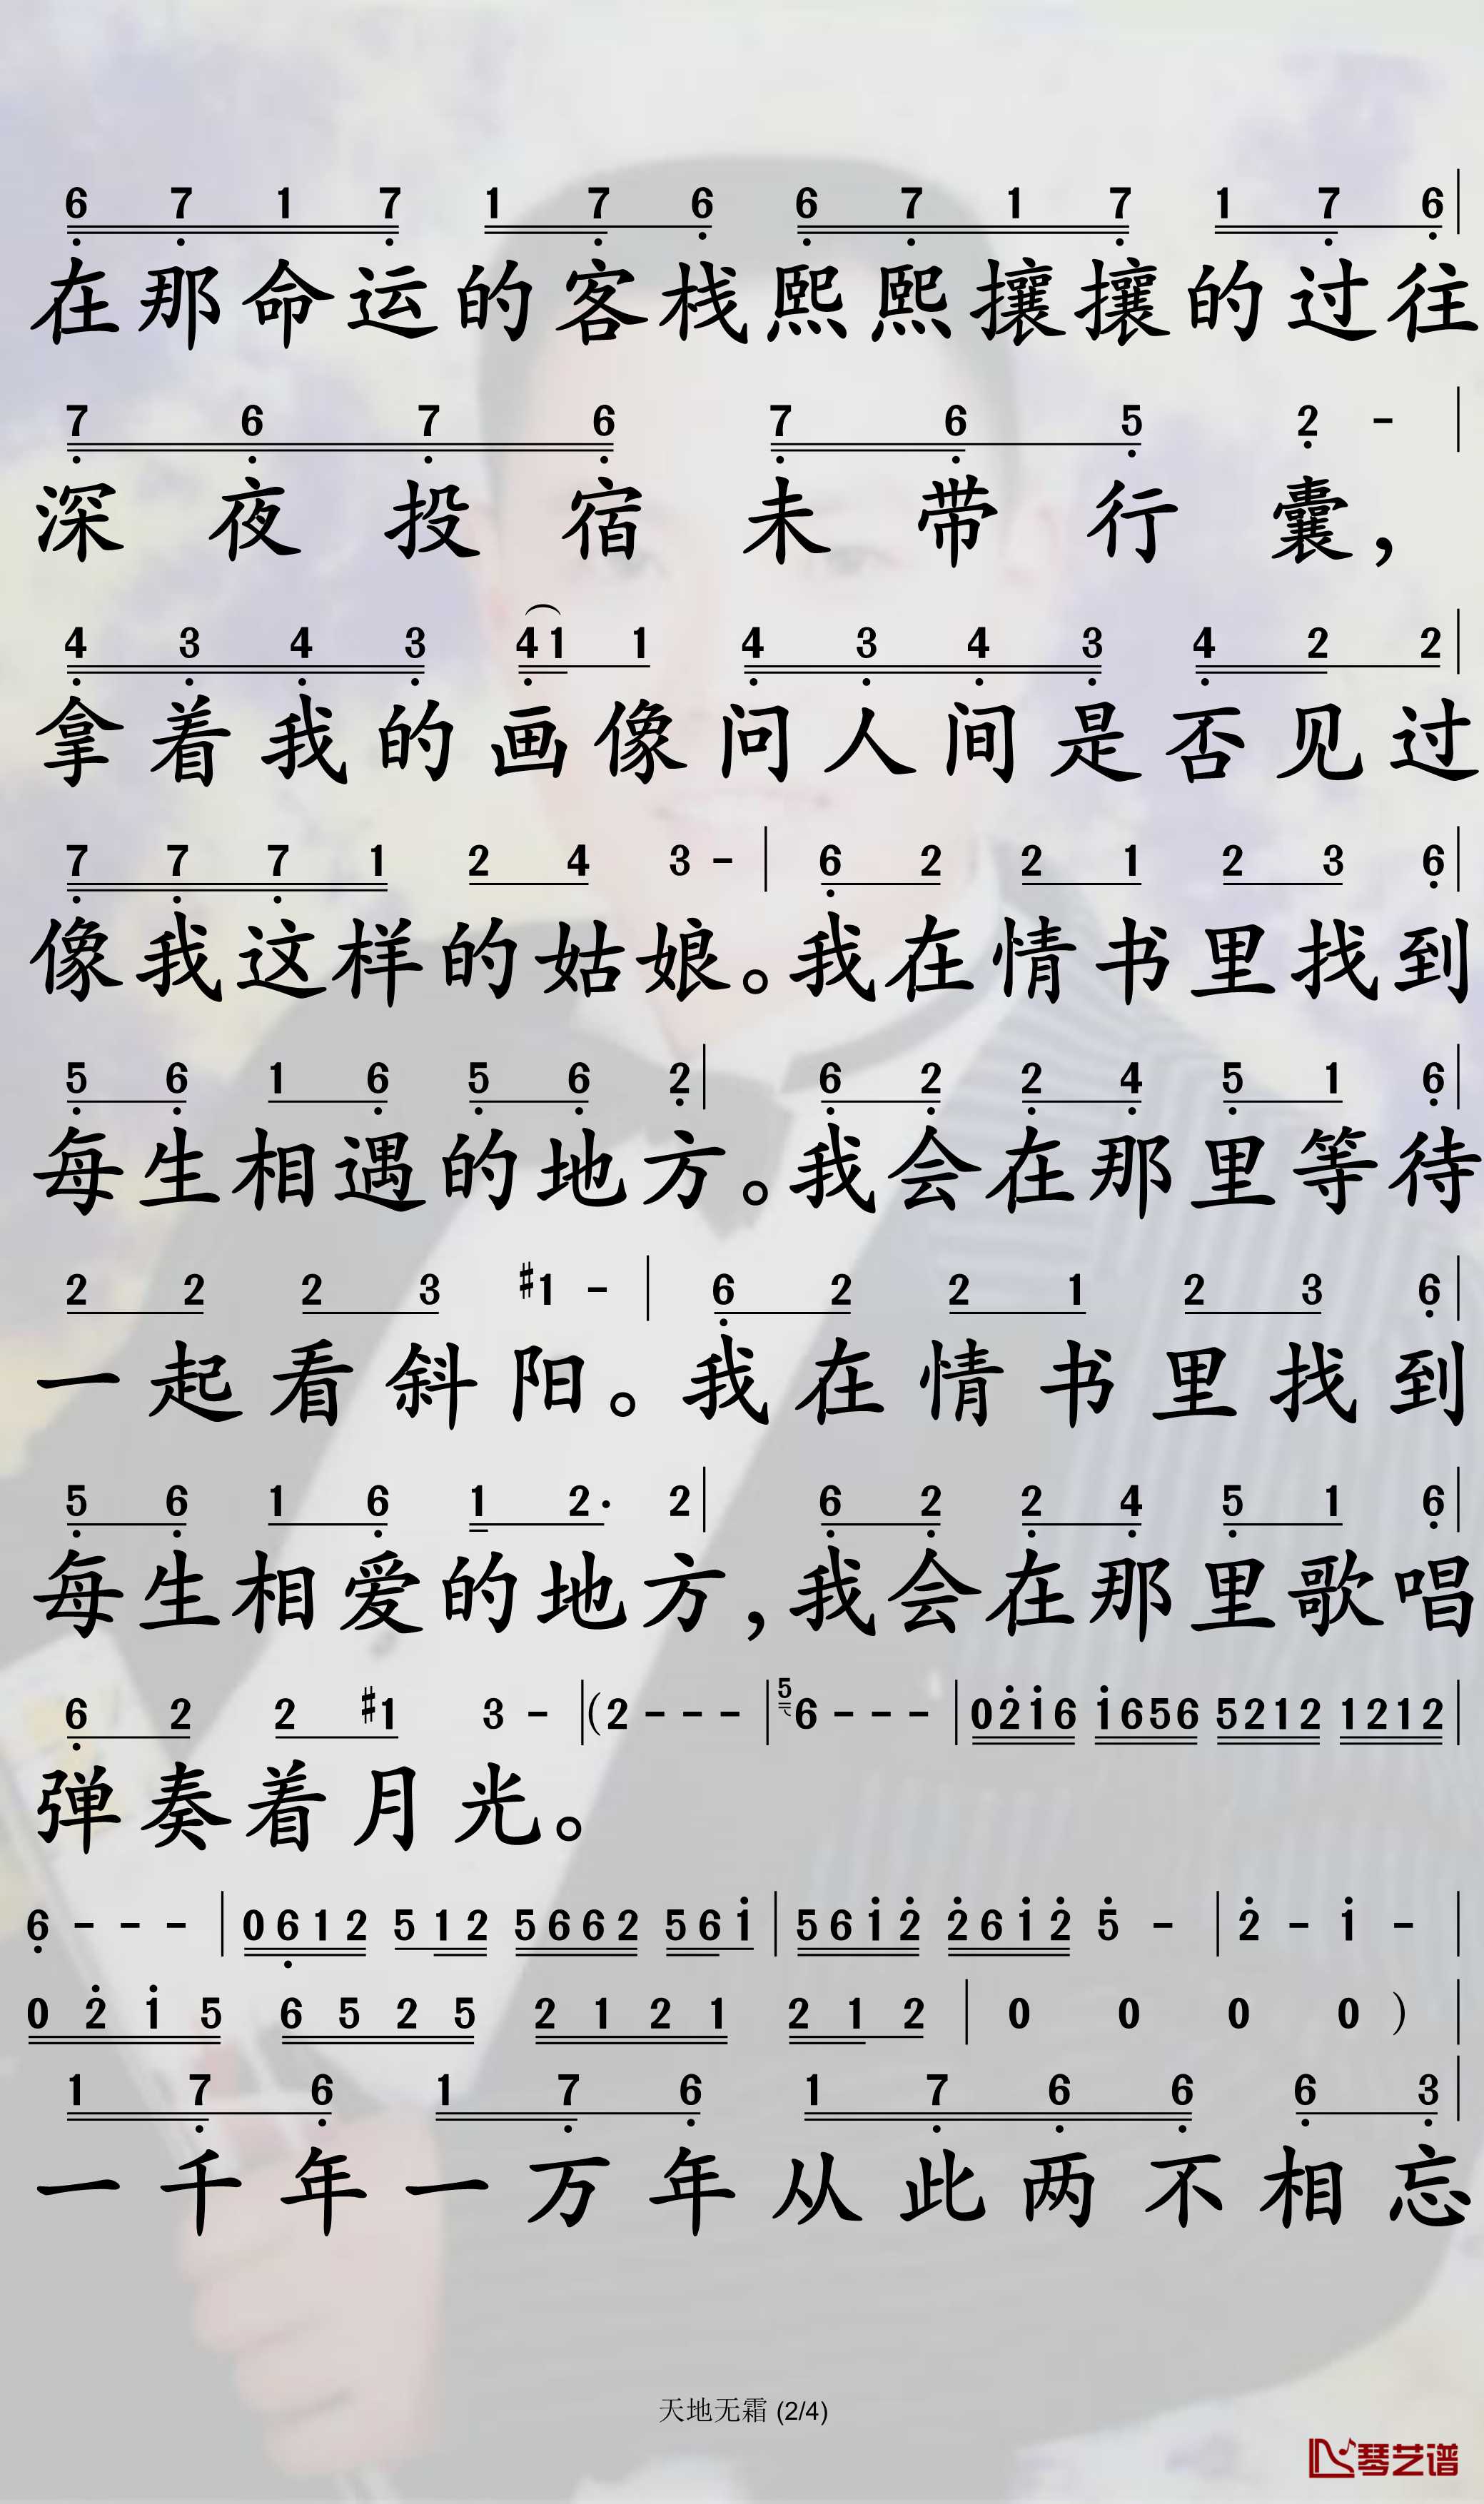 6 7 1 7 1 7 6 6 7 1 7 1 7 6
在那命运的客栈熙熙攘攘的过往
7 6 7 6 7 6 5 2 -
深夜投宿未带行囊，
4 3 4 3 41 1 4 3 4 3 4 2 2
拿着我的画像问人间是否见过
7 7 7 1 2 4 3 - | 6 2 2 1 2 3 6
像我这样的姑娘。我在情书里找到
5 6 1 6 5 6 2 | 6 2 2 4 5 1 6
每生相遇的地方。我会在那里等待
2 2 2 3 #1 - | 6 2 2 1 2 3 6
一起看斜阳。我在情书里找到
5 6 1 6 1 2· 2 | 6 2 2 4 5 1 6
每生相爱的地方，我会在那里歌唱
6 2 2 #1 3 - | (2 - - - | 5 6 - - - | 0216 1656 5212 1212
弹奏着月光。
6 - - - | 0612 512 5662 561 | 5612 2612 5 - | 2 - 1 -
0 2 1 5 6 5 2 5 2 1 2 1 2 1 2 | 0 0 0 0 )
1 7 6 1 7 6 1 7 6 6 6 3
一千年一万年从此两不相忘
天地无霜 (2/4)
琴艺谱